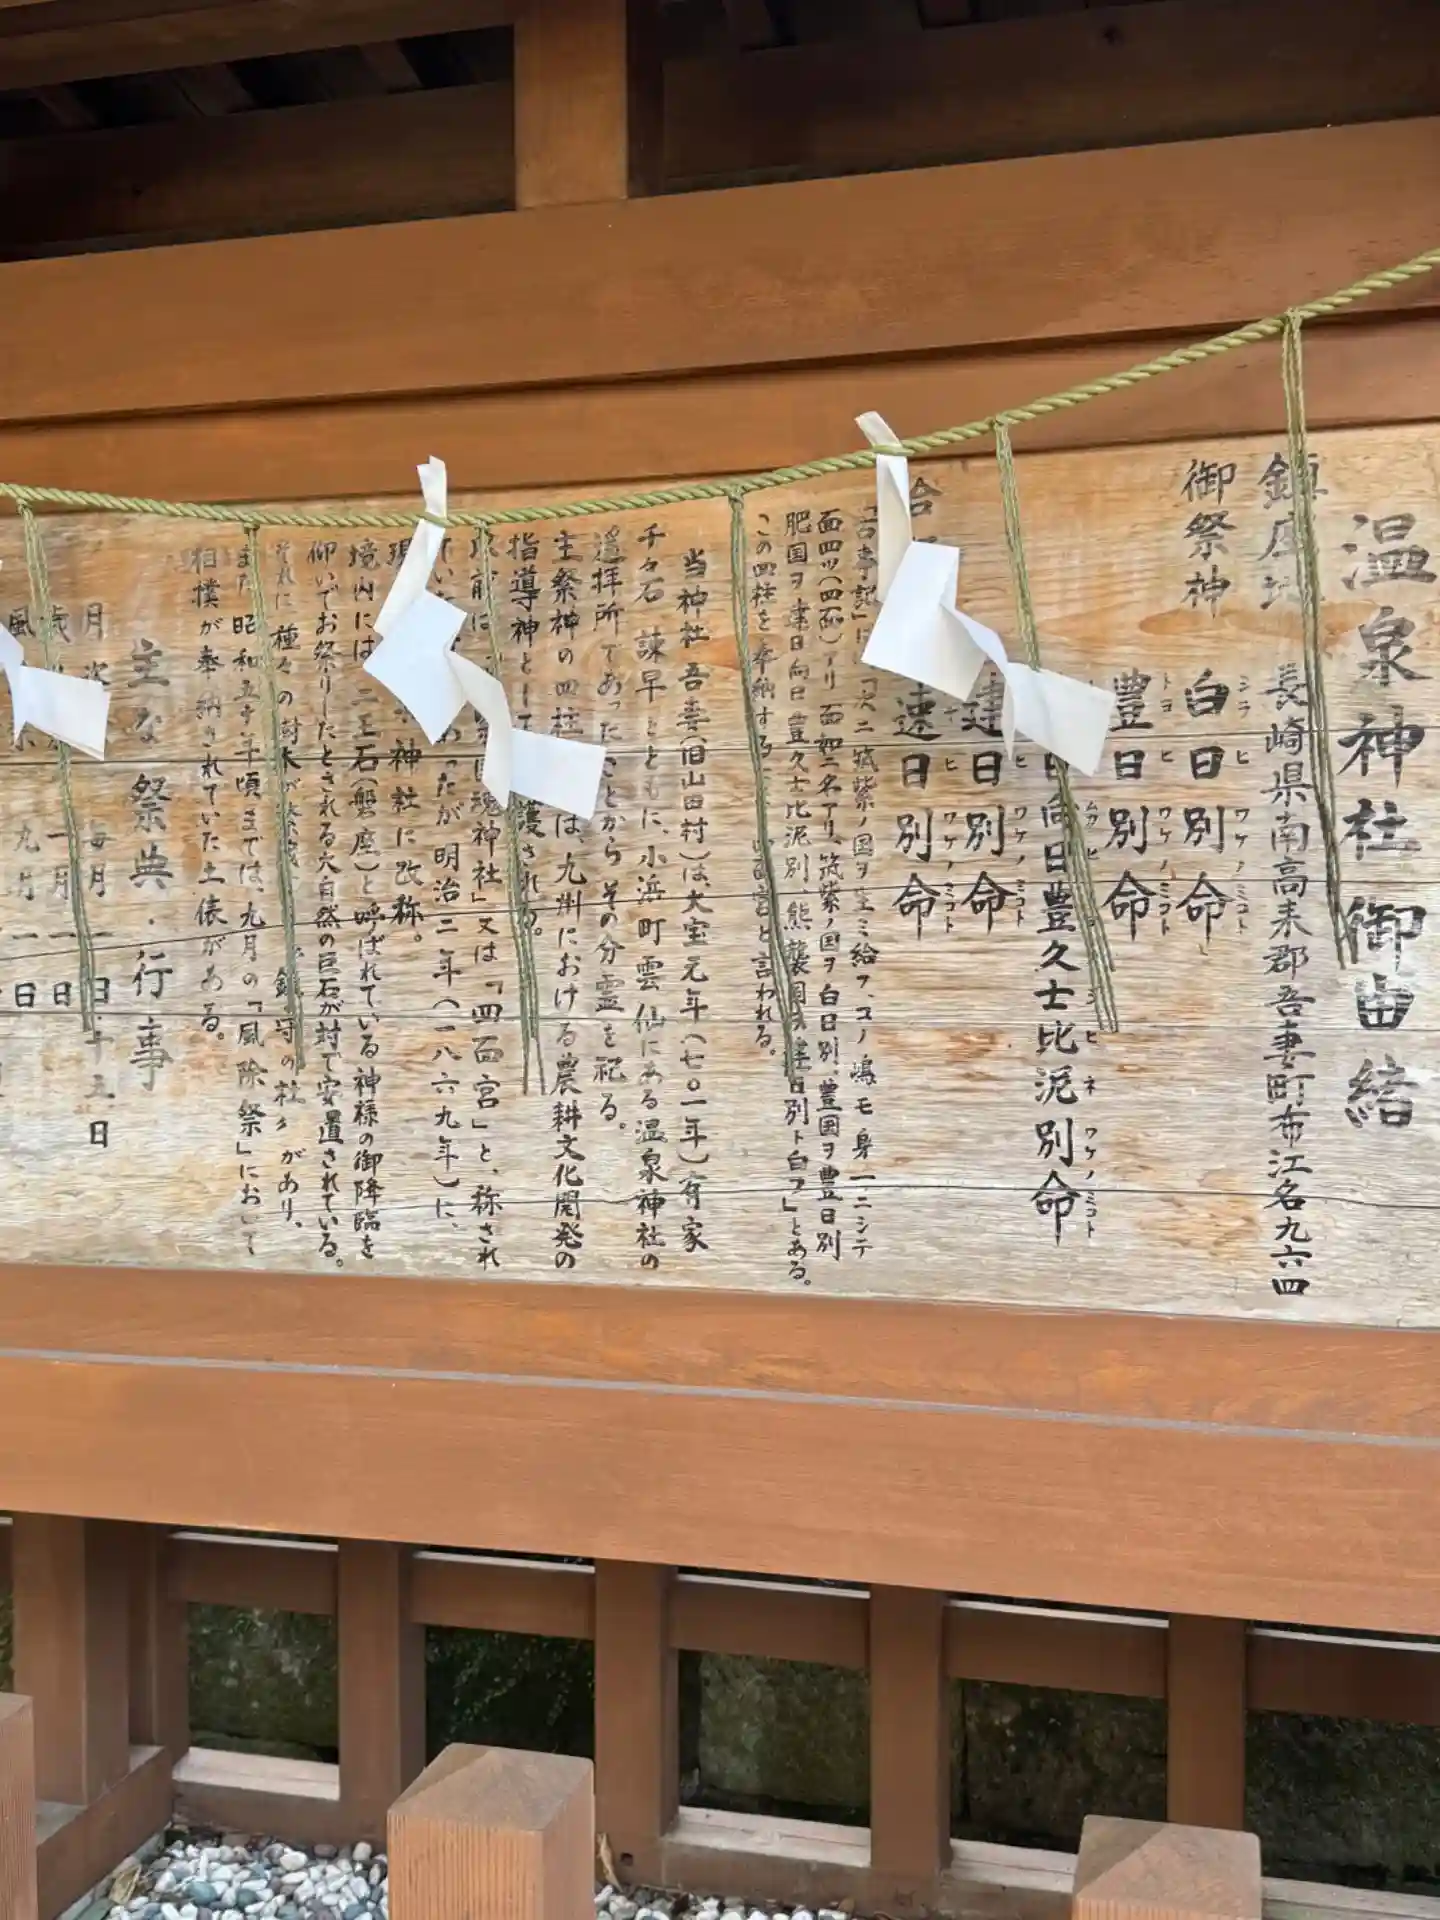 温泉神社御由緒
鎮座地 長崎県南高来郡吾妻町布江名九六四
御祭神
白日別命 シラヒワケノミコト
豊日別命 トヨヒワケノミコト
向日豊久士比泥別命 ヒネワケノミコト
建日別命 ヒワケノミコト
速日別命 ヒワケノミコト
「古事記」に「次ニ筑紫ノ国ヲ生ミ給フ、コノ嶋モ身一ニシテ
面四ツ(四面)アリ面毎ニ名アリ、筑紫ノ国ヲ白日別、豊国ヲ豊日別
肥国ヲ建日向日豊久士比泥別、熊襲国ヲ建日別ト白フ」とある。
この四柱を奉納する 四面宮と言われる。
当神社吾妻(旧山田村)は、大宝元年(七〇一年)有家
千々石 諫早とともに、小浜町雲仙にある温泉神社の
遥拝所であったことからその分霊を祀る。
主祭神の四柱 は、九州における農耕文化開発の
指導神として 護される。
以前は 国魂神社」又は「四面宮」と、称され
ていた あったが明治二年(一八六九年)に、
現 神社に改称。
境内には、二王石(磐座)と呼ばれている神様の御降臨を
仰いでお祭りしたとされる大自然の巨石が対で安置されている。
それに種々の樹木が 鎮守の杜〃があり、
また昭和五十年頃までは、九月の「風除祭」において
相撲が奉納されていた土俵がある。
主な祭典・行事
月 毎月一日・十五日
歳 一月一日
風 九月一日